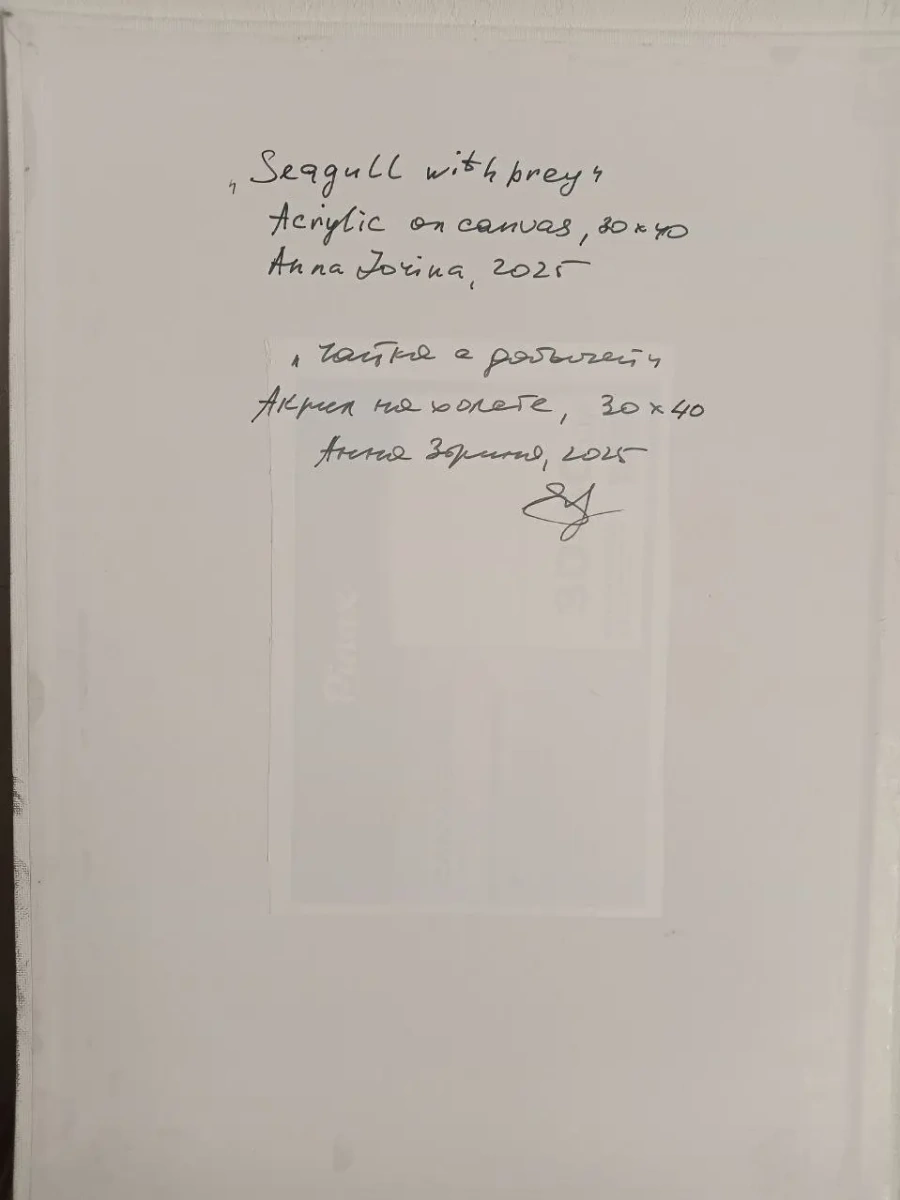 „Seagull with prey"
Acrylic on canvas, 30×40
Anna Zorina, 2025
„Чайка с добычей"
Акрил на холсте, 30×40
Анна Зорина, 2025
Pinax
30